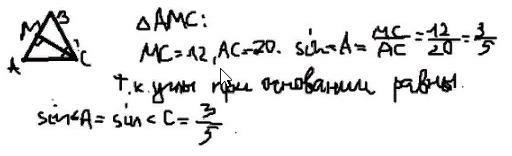 B
M
A
C
△AMC:
MC=12, AC=20. sin∠A = MC/AC = 12/20 = 3/5
т.к. углы при основании равны.
sin∠A = sin∠C = 3/5